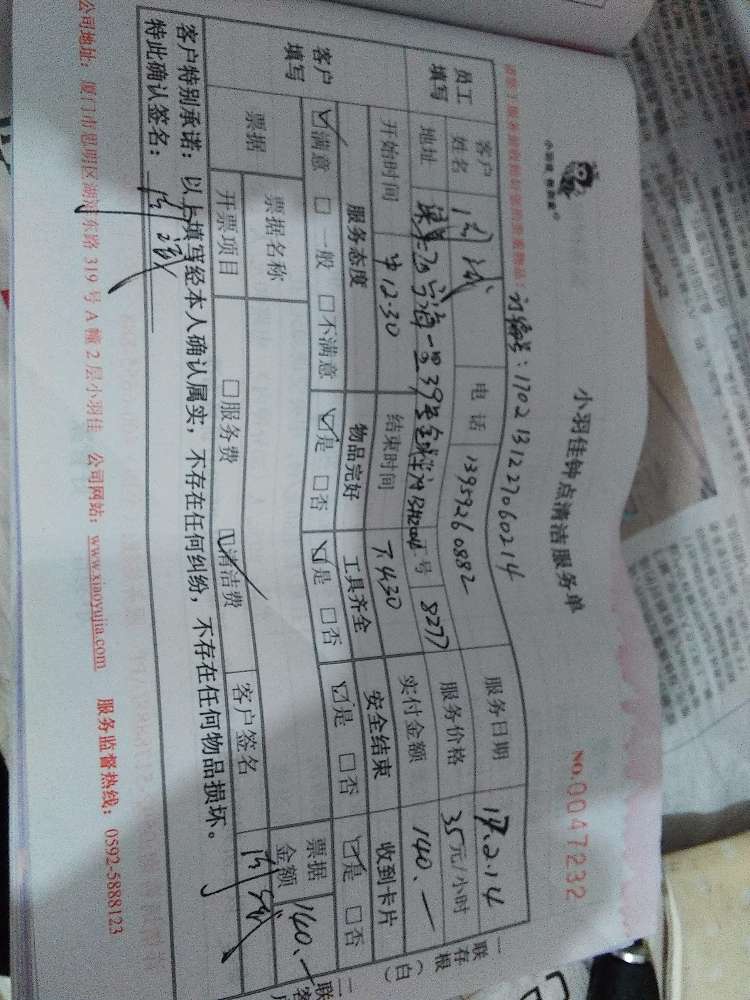 小羽佳钟点清洁服务单
NO.0047232
小羽佳 您的家
订编号:170213122706 0214
员工填写 客户姓名 电话 13959260882 服务日期 17.2.14
地址 39号 工号 8277 服务价格 35元/小时
开始时间 中12:30 结束时间 下4:30 实付金额 140.—
客户填写 服务态度 物品完好 工具齐全 安全结束 收到卡片
☑满意 □一般 □不满意 ☑是 □否 ☑是 □否 ☑是 □否 ☑是 □否
票据 票据名称 票据金额 140.—
开票项目 □服务费 ☑清洁费 客户签名
客户特别承诺:以上填写经本人确认属实,不存在任何纠纷,不存在任何物品损坏。
特此确认签名:
公司地址:厦门市思明区湖滨东路319号A幢2层小羽佳 公司网站:www.xiaoyujia.com 服务监督热线:0592-5888123
一联存根(白)